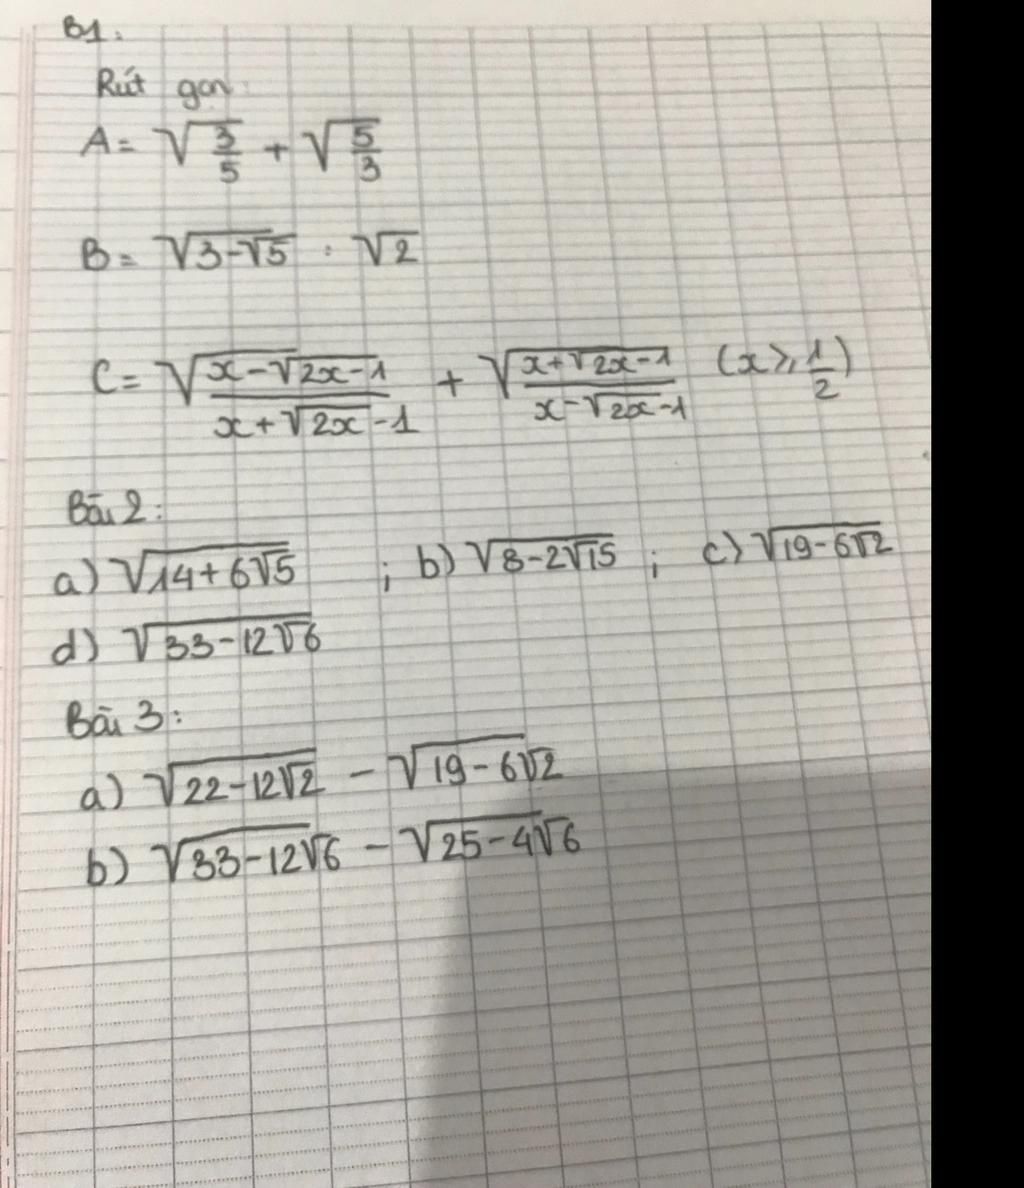 B1.
Rút gọn
A = √(3/5) + √(5/3)
B = √(3-√5) : √2
C = √((x-√(2x-1))/(x+√(2x)-1)) + √((x+√(2x-1))/(x-√(2x)-1)) (x ≥ 1/2)
Bài 2:
a) √(14+6√5) ; b) √(8-2√15) ; c) √(19-6√2)
d) √(33-12√6)
Bài 3:
a) √(22-12√2) - √(19-6√2)
b) √(33-12√6) - √(25-4√6)